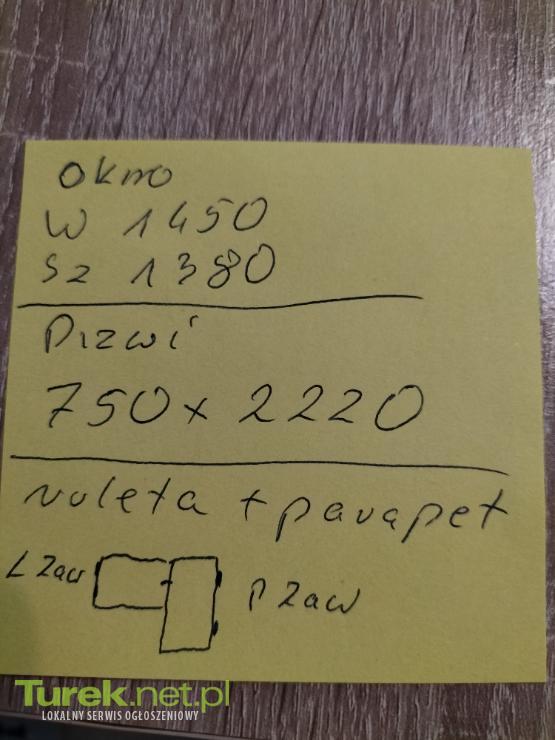 okno
W 1450
Sz 1380
Drzwi
750 x 2220
roleta + parapet
L Zaw
P Zaw
Turek.net.pl
LOKALNY SERWIS OGŁOSZENIOWY